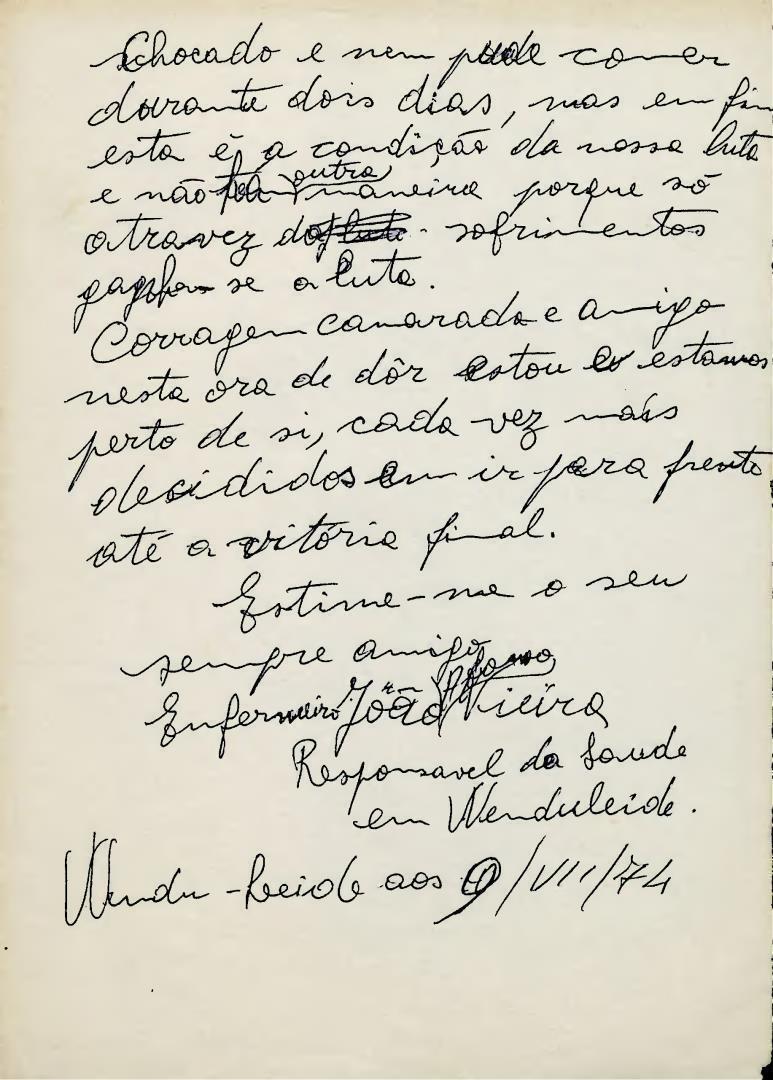 Chocado e nem pude comer
durante dois dias, mas em fim
esta é a condição da nossa luta
e não há outra maneira porque só
atravez dos sofrimentos
ganha-se a luta.
Corragem camarada e amigo
nesta ora de dôr estou e estamos
perto de si, cada vez mais
decididos em ir para frente
até a vitória final.
Estime-me o seu
sempre amigo
Enfermeiro João Afonso Vieira
Responsavel da Saude
em Wenduleide.
Wendu-Leide aos 9/VII/74